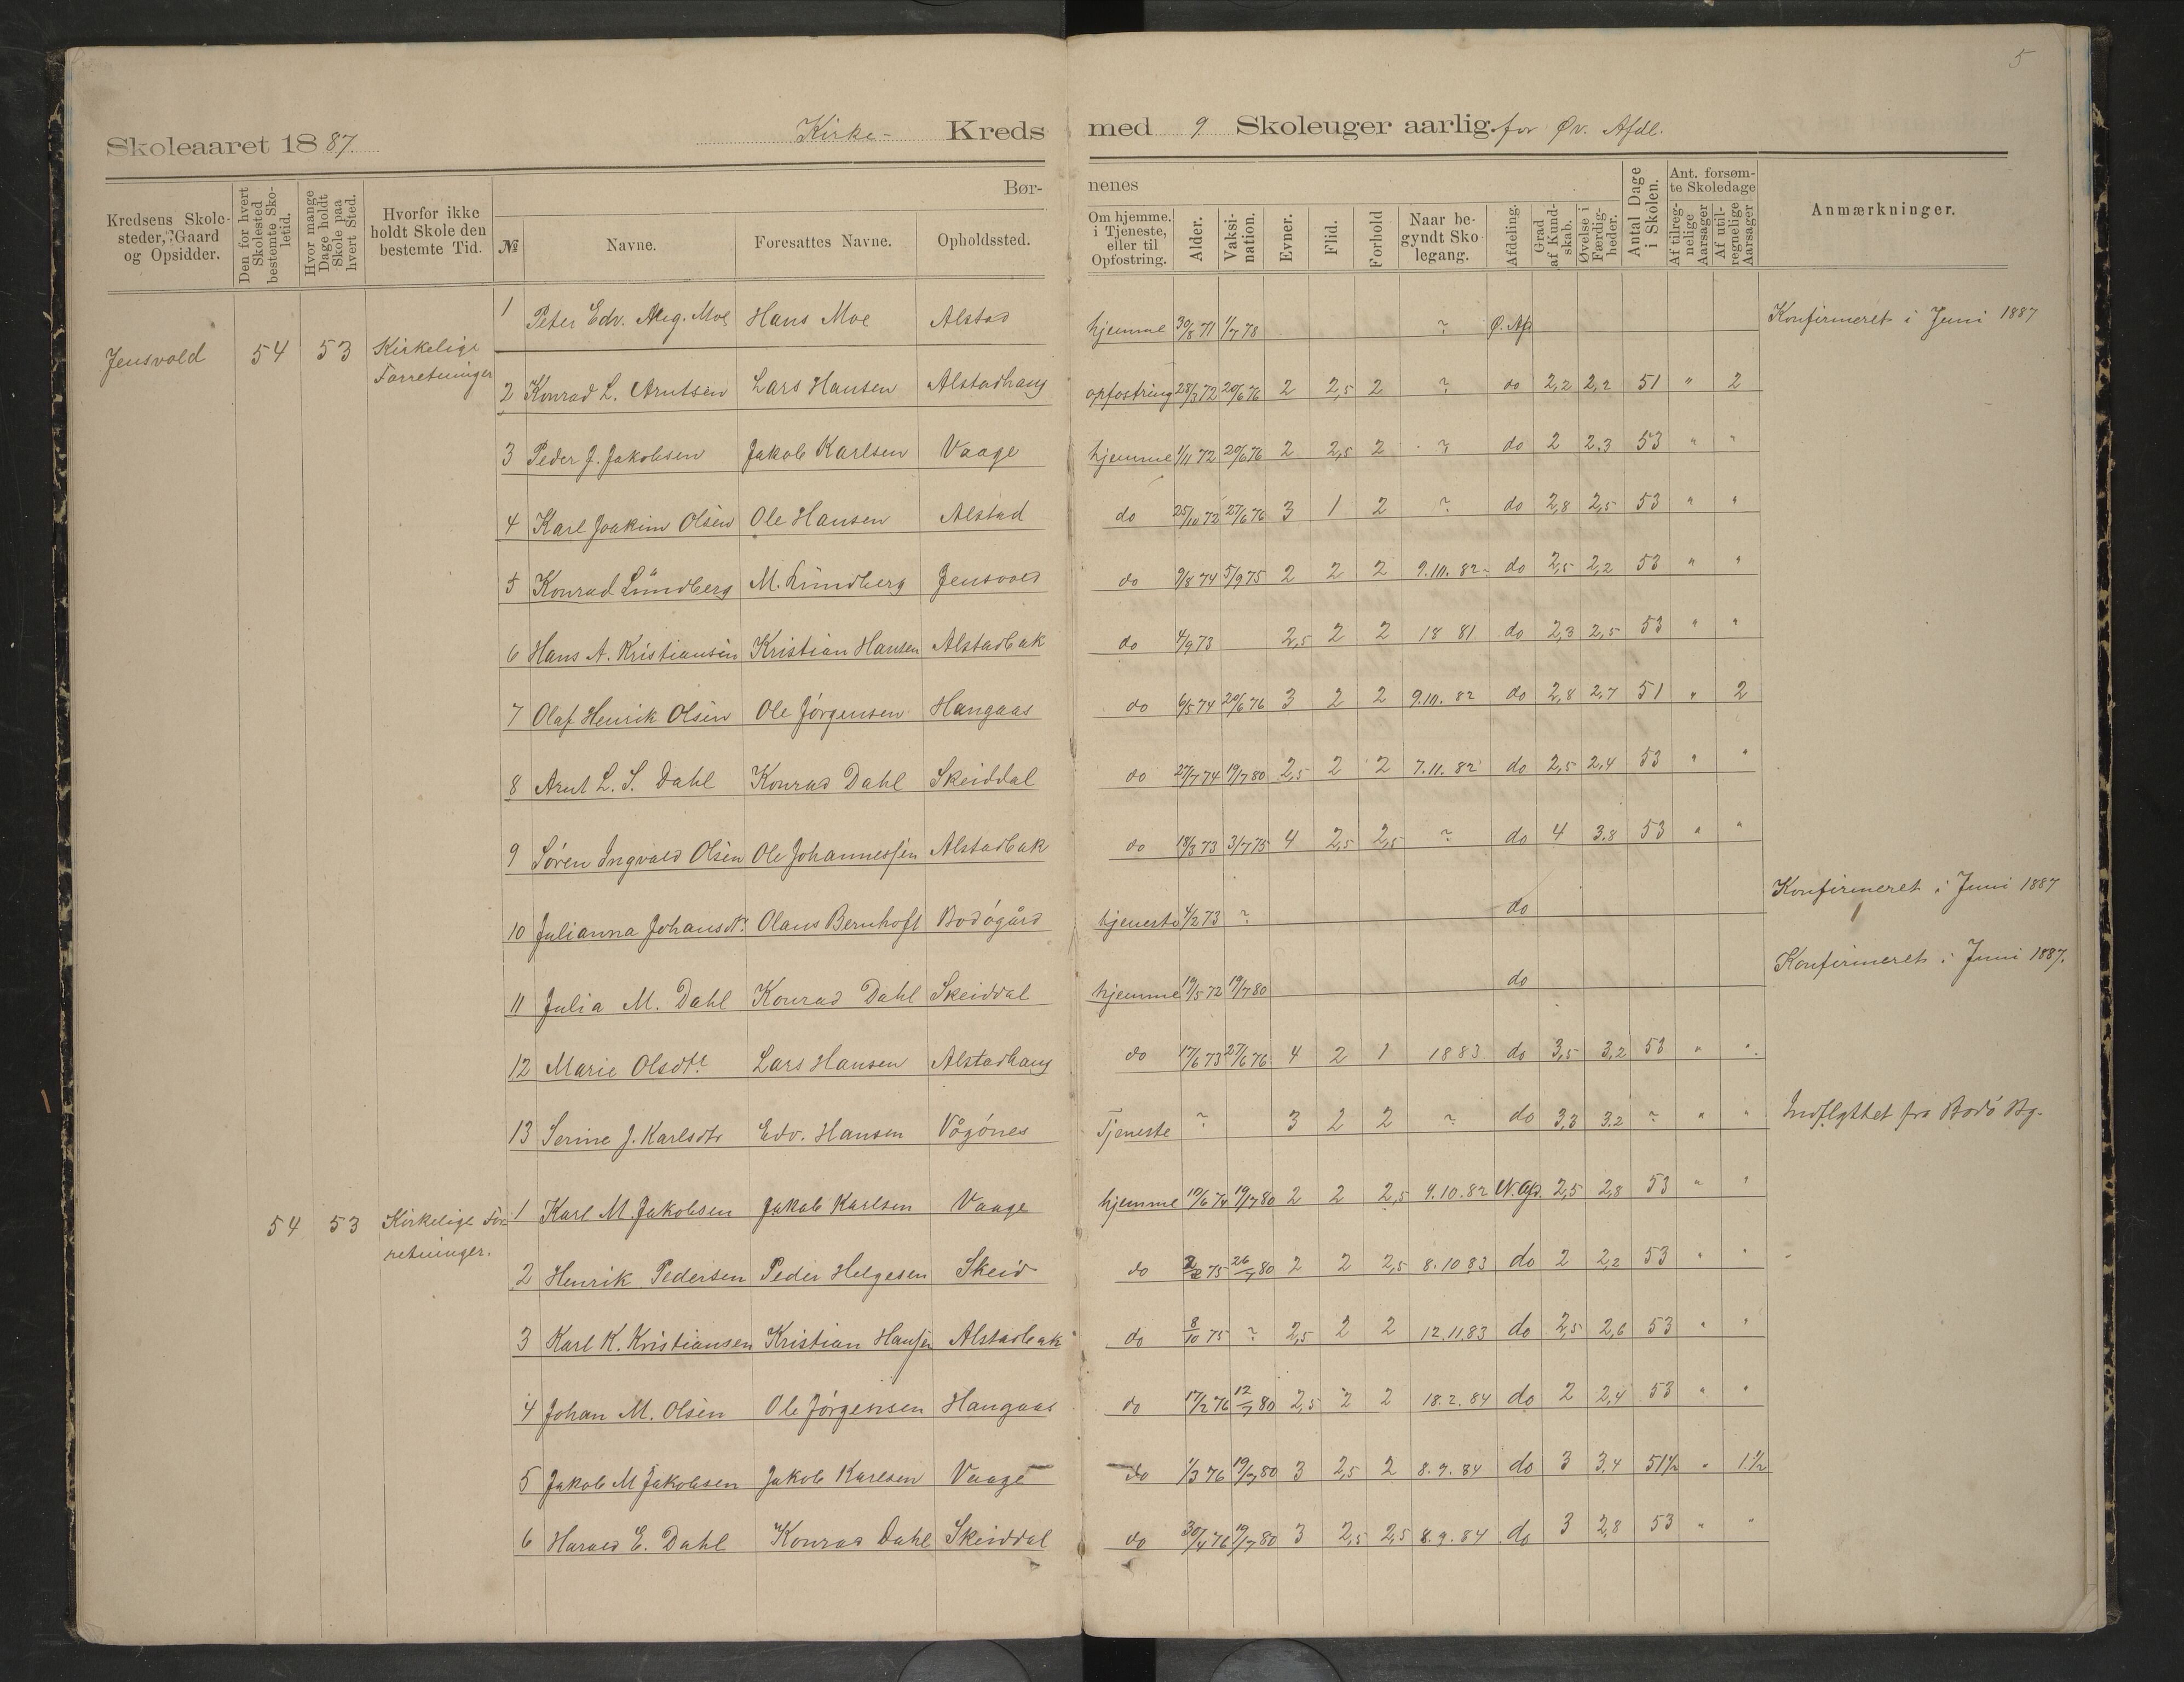 5
Skoleaaret 1887. Kirke- Kreds med 9 Skoleuger aarlig for Øv. Afdl.
Kredsens Skolesteder, Gaard og Opsidder.
Den for hvert Skolested bestemte Skoletid.
Hvor mange Dage holdt Skole paa hvert Sted.
Hvorfor ikke holdt Skole den bestemte Tid.
Børnenes
№ Navne. Foresattes Navne. Opholdssted.
Om hjemme. i Tjeneste, eller til Opfostring.
Alder. Vaksination. Evner. Flid. Forhold
Naar begyndt Skolegang.
Afdeling. Grad af Kundskab. Øvelse i Færdigheder.
Antal Dage i Skolen.
Ant. forsømte Skoledage
Af tilregnelige Aarsager
Af utilregnelige Aarsager
Anmærkninger.
Jensvold 54 53 Kirkelige Forretninger
1 Peter Edv. Aug. Moe Hans Moe Alstad hjemme 30/8 71 1/7 78 ? Ø. Afd Konfirmeret i Juni 1887
2 Konrad L. Arntsen Lars Hansen Alstadhaug opfostring 28/3 72 20/6 76 2 2,5 2 ? do 2,2 2,2 51 " 2
3 Peder J. Jakobsen Jakob Karlsen Vaage hjemme 1/11 72 20/6 76 2 2,5 2 ? do 2 2.3 53 " "
4 Karl Joakim Olsen Ole Hansen Alstad do 25/10 72 27/6 76 3 1 2 ? do 2,8 2,5 53 " "
5 Konrad Lundberg M. Lundberg Jensvold do 9/8 74 5/9 75 2 2 2 9.10. 82 do 2,5 2,2 53 " "
6 Hans A. Kristiansen Kristian Hansen Alstadbak do 4/9 73 2,5 2 2 18 81 do 2,3 2,5 53 " "
7 Olaf Henrik Olsen Ole Jörgensen Haugaas do 6/5 74 20/6 76 3 2 2 9.10. 82 do 2,8 2,7 51 " 2
8 Arnt L. S. Dahl Konrad Dahl Skeiddal do 27/7 74 19/7 80 2,5 2 2 7.11. 82 do 2,5 2,4 53 " "
9 Sören Ingvald Olsen Ole Johannessen Alstadbak do 18/3 73 3/7 75 4 2,5 2,5 ? do 4 3.8 53 " "
10 Julianna Johansdtr. Olaus Bernhoft Bodøgård tjeneste 4/2 73 ? do Konfirmeret i Juni 1887
11 Julia M. Dahl Konrad Dahl Skeiddal hjemme 19/5 72 19/7 80 do Konfirmeret i Juni 1887.
12 Marie Olsdtr Lars Hansen Alstadhaug do 17/6 73 27/6 76 4 2 1 1883 do 3,5 3,2 53 " "
13 Serine J. Karlsdtr Edv. Hansen Vågönes Tjeneste ? 3 2 2 ? do 3,3 3.2 ? " " Indflyttet fra Bodö By.
54 53 Kirkelige Forretninger.
1 Karl M Jakobsen Jakob Karlsen Vaage hjemme 19/6 74 19/7 80 2 2 2,5 9.10.82 N. Afd. 2,5 2,8 53 " "
2 Henrik Pedersen Peder Helgesen Skeid do 2/2 75 26/7 80 2 2 2,5 8.10 83 do 2 2,2 53 " "
3 Karl K. Kristiansen Kristian Hansen Alstadbak do 8/10 75 ? 2,5 2 2 12.11.83 do 2,5 2,6 53 " "
4 Johan M. Olsen Ole Jörgensen Haugaas do 17/2 76 12/7 80 2,5 2 2 18.2.84 do 2 2,4 53 " "
5 Jakob M Jakobsen Jakob Karlsen Vaage do 1/3 76 19/7 80 3 2,5 2 8.9.84 do 3 3,4 51½ " 1½
6 Harald E. Dahl Konrad Dahl Skeiddal do 30/4 76 19/7 80 3 2,5 2,5 8.9.84 do 3 2,8 53 " "